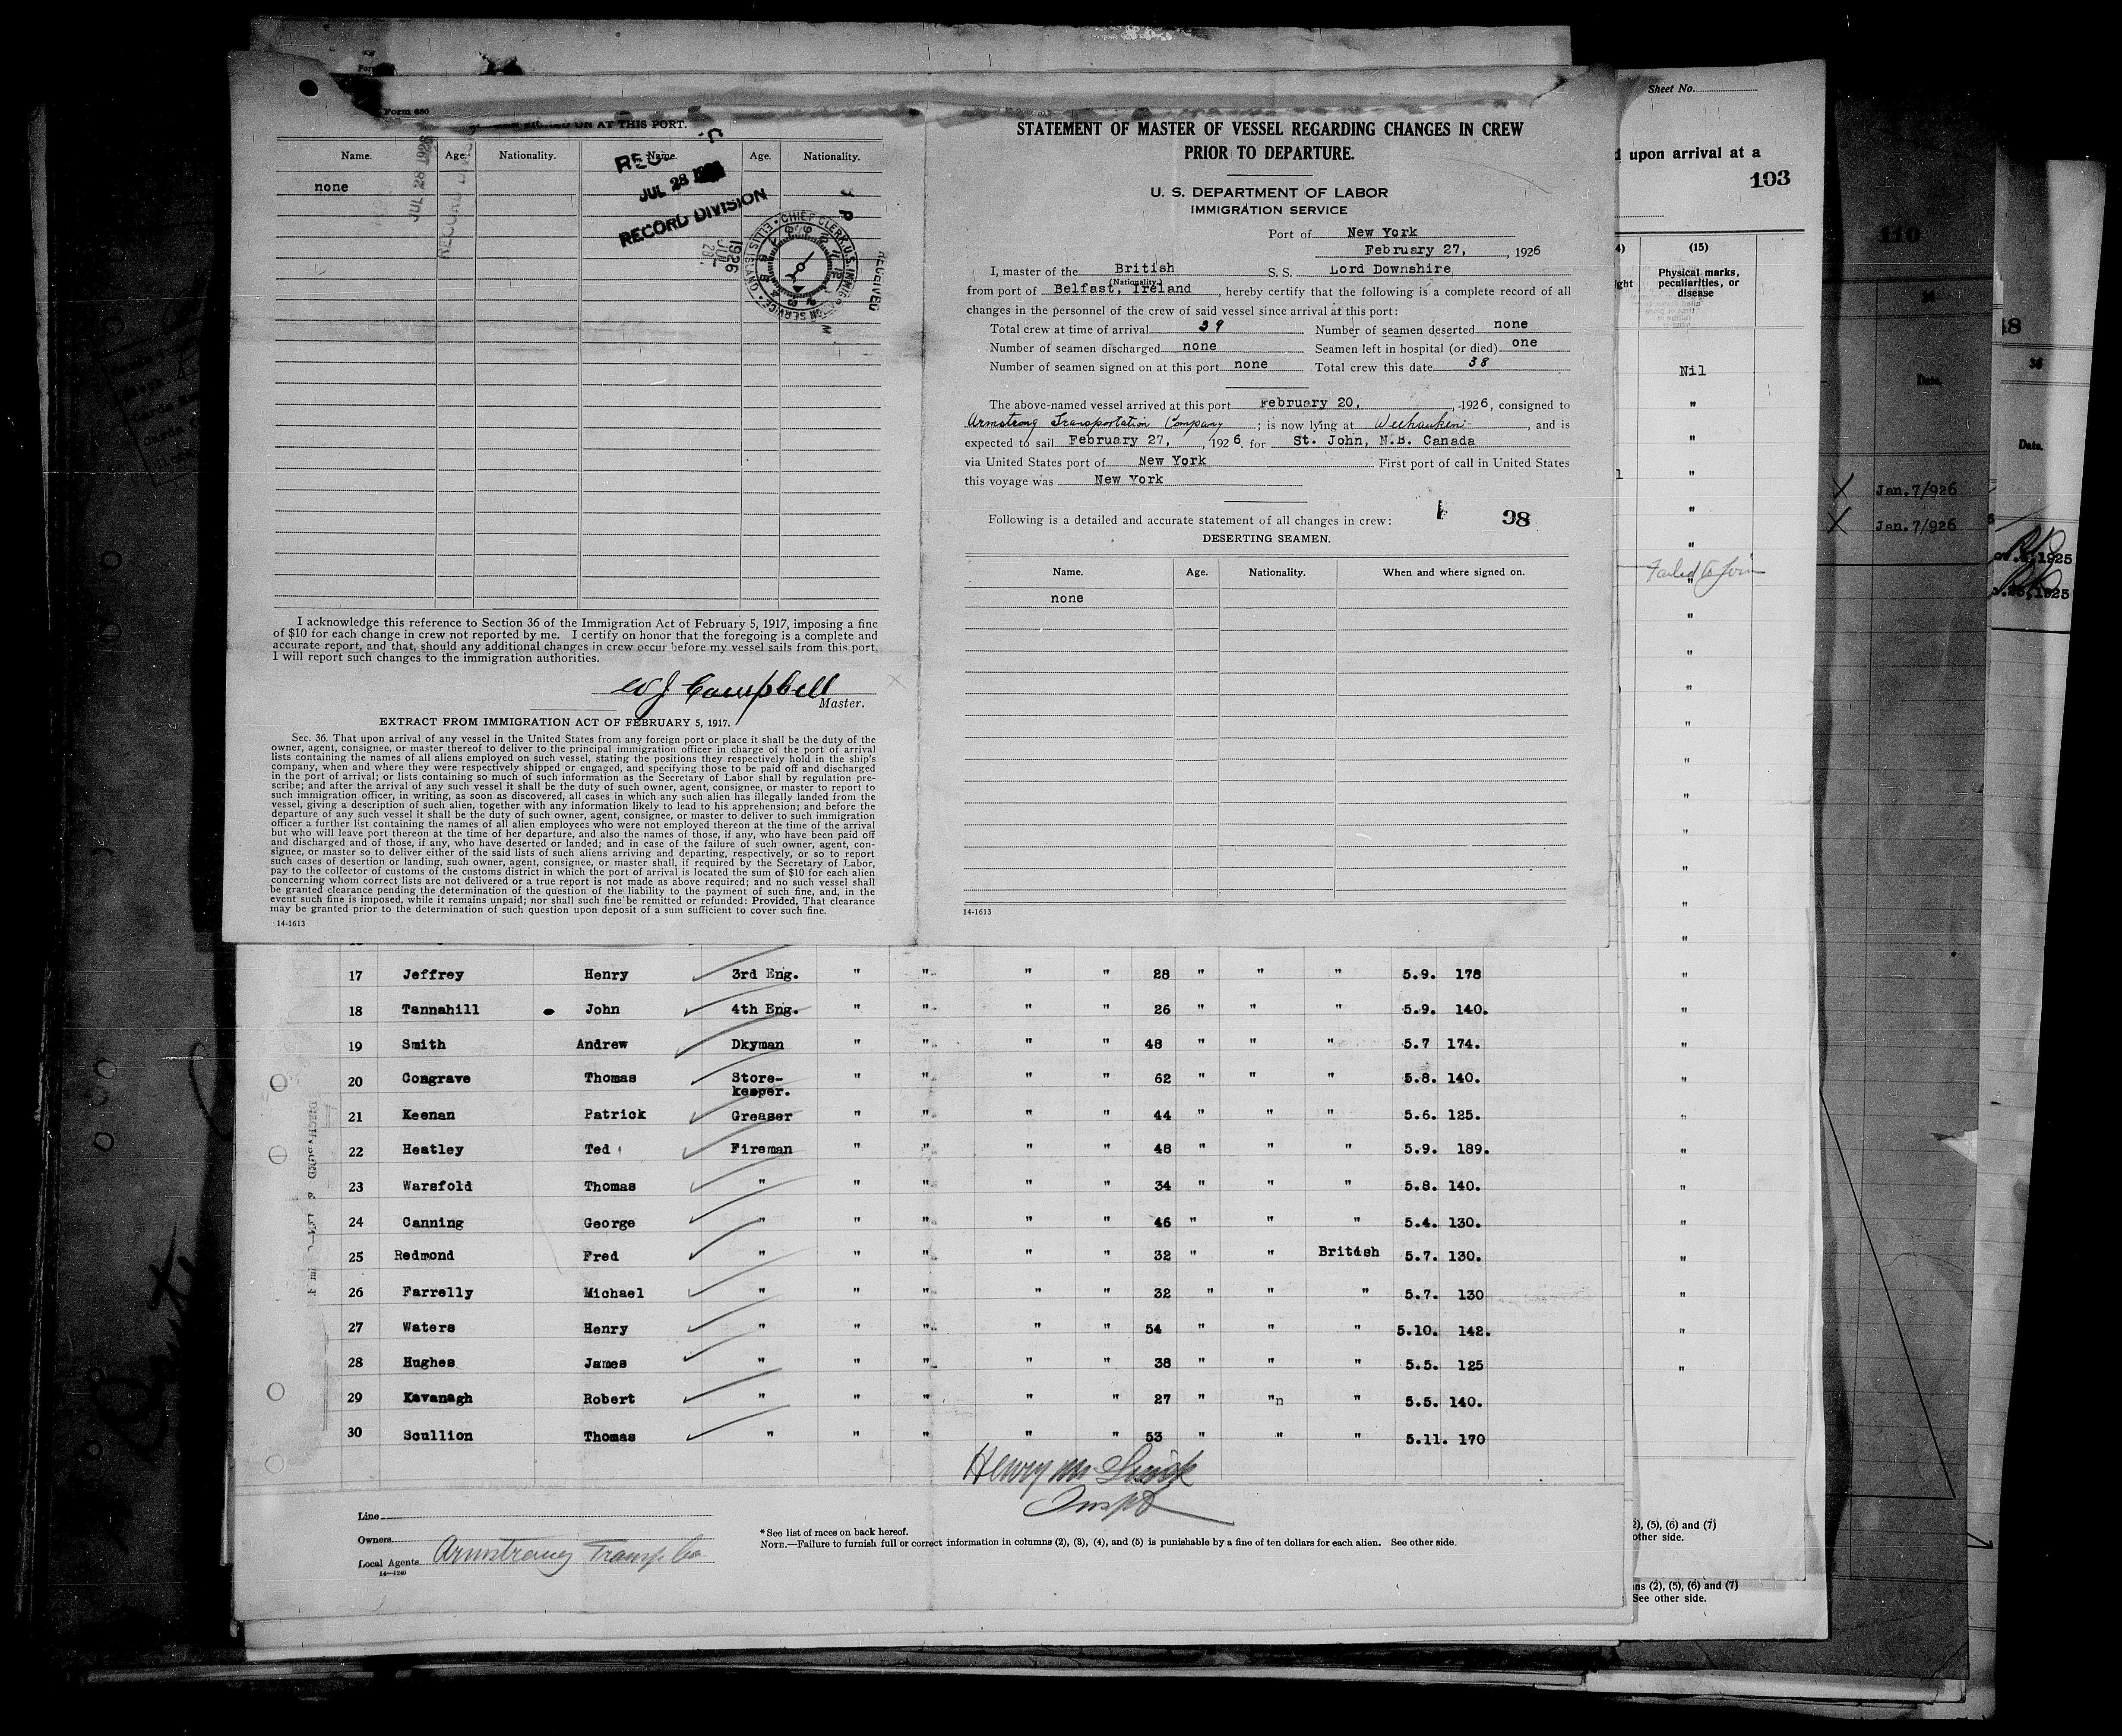 Form 680
SIGNED ON AT THIS PORT.
Name. Age. Nationality. Name. Age. Nationality.
none
JUL 28 1926
JUL 28
RECORD DIVISION
CHIEF CLERK, U.S. IMMIGRATION SERVICE • ELLIS ISLAND •
RECEIVED
1926 JUL 28
I acknowledge this reference to Section 36 of the Immigration Act of February 5, 1917, imposing a fine
of $10 for each change in crew not reported by me. I certify on honor that the foregoing is a complete and
accurate report, and that, should any additional changes in crew occur before my vessel sails from this port,
I will report such changes to the immigration authorities.
W J Campbell
Master.
EXTRACT FROM IMMIGRATION ACT OF FEBRUARY 5, 1917.
Sec. 36. That upon arrival of any vessel in the United States from any foreign port or place it shall be the duty of the
owner, agent, consignee, or master thereof to deliver to the principal immigration officer in charge of the port of arrival
lists containing the names of all aliens employed on such vessel, stating the positions they respectively hold in the ship's
company, when and where they were respectively shipped or engaged, and specifying those to be paid off and discharged
in the port of arrival; or lists containing so much of such information as the Secretary of Labor shall by regulation pre-
scribe; and after the arrival of any such vessel it shall be the duty of such owner, agent, consignee, or master to report to
such immigration officer, in writing, as soon as discovered, all cases in which any such alien has illegally landed from the
vessel, giving a description of such alien, together with any information likely to lead to his apprehension; and before the
departure of any such vessel it shall be the duty of such owner, agent, consignee, or master to deliver to such immigration
officer a further list containing the names of all alien employees who were not employed thereon at the time of the arrival
but who will leave port thereon at the time of her departure, and also the names of those, if any, who have been paid off
and discharged and of those, if any, who have deserted or landed; and in case of the failure of such owner, agent, con-
signee, or master so to deliver either of the said lists of such aliens arriving and departing, respectively, or so to report
such cases of desertion or landing, such owner, agent, consignee, or master shall, if required by the Secretary of Labor,
pay to the collector of customs of the customs district in which the port of arrival is located the sum of $10 for each alien
concerning whom correct lists are not delivered or a true report is not made as above required; and no such vessel shall
be granted clearance pending the determination of the question of the liability to the payment of such fine, and, in the
event such fine is imposed, while it remains unpaid; nor shall such fine be remitted or refunded: Provided, That clearance
may be granted prior to the determination of such question upon deposit of a sum sufficient to cover such fine.
14-1613
STATEMENT OF MASTER OF VESSEL REGARDING CHANGES IN CREW
PRIOR TO DEPARTURE.
U. S. DEPARTMENT OF LABOR
IMMIGRATION SERVICE
Port of New York
February 27, , 1926
I, master of the British S. S. Lord Downshire
(Nationality.)
from port of Belfast, Ireland, hereby certify that the following is a complete record of all
changes in the personnel of the crew of said vessel since arrival at this port:
Total crew at time of arrival 39 Number of seamen deserted none
Number of seamen discharged none Seamen left in hospital (or died) one
Number of seamen signed on at this port none Total crew this date 38
The above-named vessel arrived at this port February 20, , 1926, consigned to
Armstrong Transportation Company ; is now lying at Weehauken , and is
expected to sail February 27, , 1926. for St. John, N.B. Canada
via United States port of New York First port of call in United States
this voyage was New York
Following is a detailed and accurate statement of all changes in crew: 98
DESERTING SEAMEN.
Name. Age. Nationality. When and where signed on.
none
14-1613
17 Jeffrey Henry 3rd Eng. " " " " 28 " " " 5.9. 178
18 Tannahill John 4th Eng. " " " " 26 " " " 5.9. 140.
19 Smith Andrew Dkyman " " " " 48 " " " 5.7 174.
20 Cosgrave Thomas Store-keeper. " " " " 62 " " " 5.8. 140.
21 Keenan Patrick Greaser " " " " 44 " " " 5.6. 125.
22 Heatley Ted Fireman " " " " 48 " " " 5.9. 189.
23 Warsfold Thomas " " " " " 34 " " " 5.8. 140.
24 Canning George " " " " " 46 " " " 5.4. 130.
25 Redmond Fred " " " " " 32 " " British 5.7. 130.
26 Farrelly Michael " " " " " 32 " " " 5.7. 130
27 Waters Henry " " " " " 54 " " " 5.10. 142.
28 Hughes James " " " " " 38 " " " 5.5. 125
29 Kavanagh Robert " " " " " 27 " "n " 5.5. 140.
30 Scullion Thomas " " " " " 53 " " " 5.11. 170
Line
Owners
Local Agents Armstrong Transp. Co
14-1240
* See list of races on back hereof.
NOTE.—Failure to furnish full or correct information in columns (2), (3), (4), and (5) is punishable by a fine of ten dollars for each alien. See other side.
Sheet No.
upon arrival at a
103
(15)
Physical marks,
peculiarities, or
disease
Nil
Failed to Join
(5), (6) and (7)
other side.
(2), (5), (6) and (7)
See other side.
110
Date.
Jan.7/926
Jan.7/926
36
Date.
1925
1925